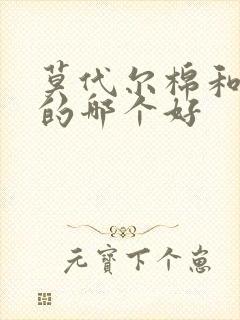 莫代尔棉和
的哪个好
元寳下个崽